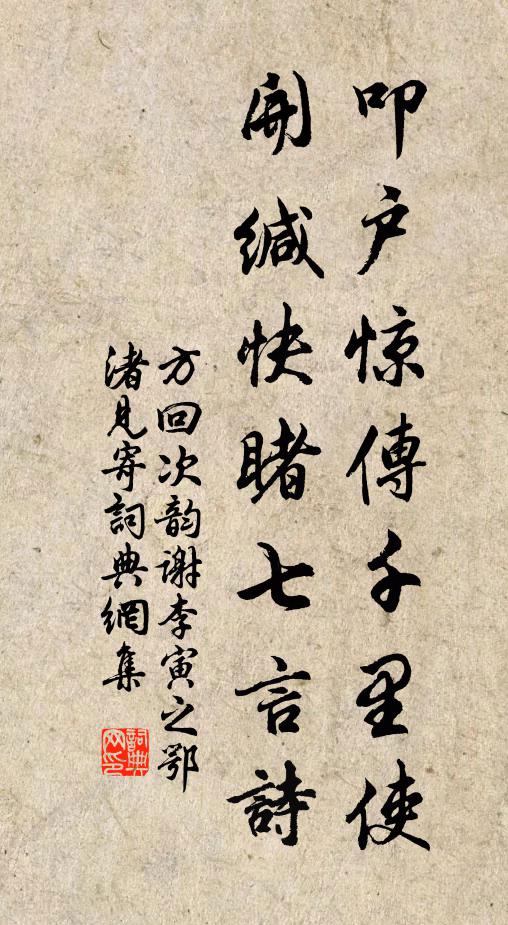 叩户惊傳千里使
開缄快睹七言詩
方回次韵謝李寅之鄂
渚見寄詞典網集
詞典
网印